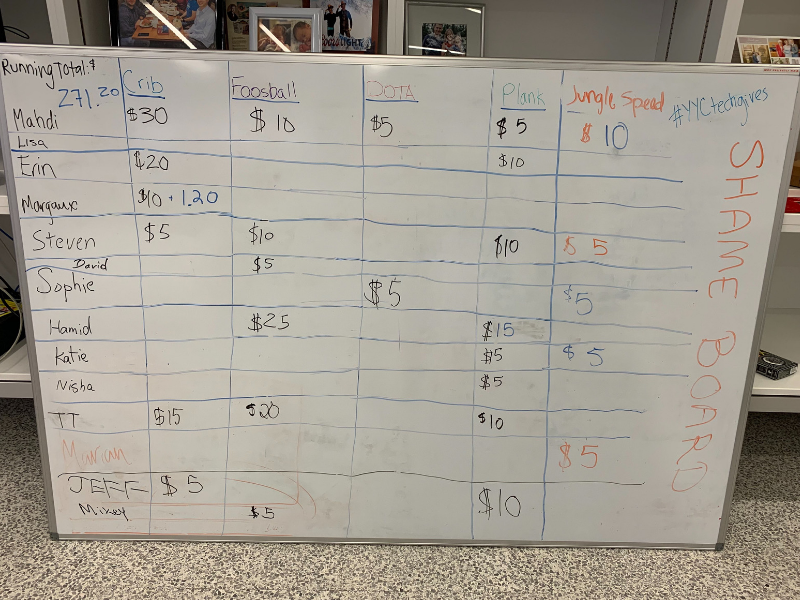 Running Total: $ Crib Foosball DOTA Plank Jungle Speed #YYCtechgives
271.20
Mahdi $30 $10 $5 $5 $10
Lisa
Erin $20 $10
Margaux $10 + 1.20
Steven $5 $10 $10 $5
David $5
Sophie $5 $5
Hamid $25 $15
Katie $5 $5
Nisha $5
TT $15 $20 $10
Marian $5
JEFF $5 $10
Mikey $5
SHAME BOARD
COORS LIGHT